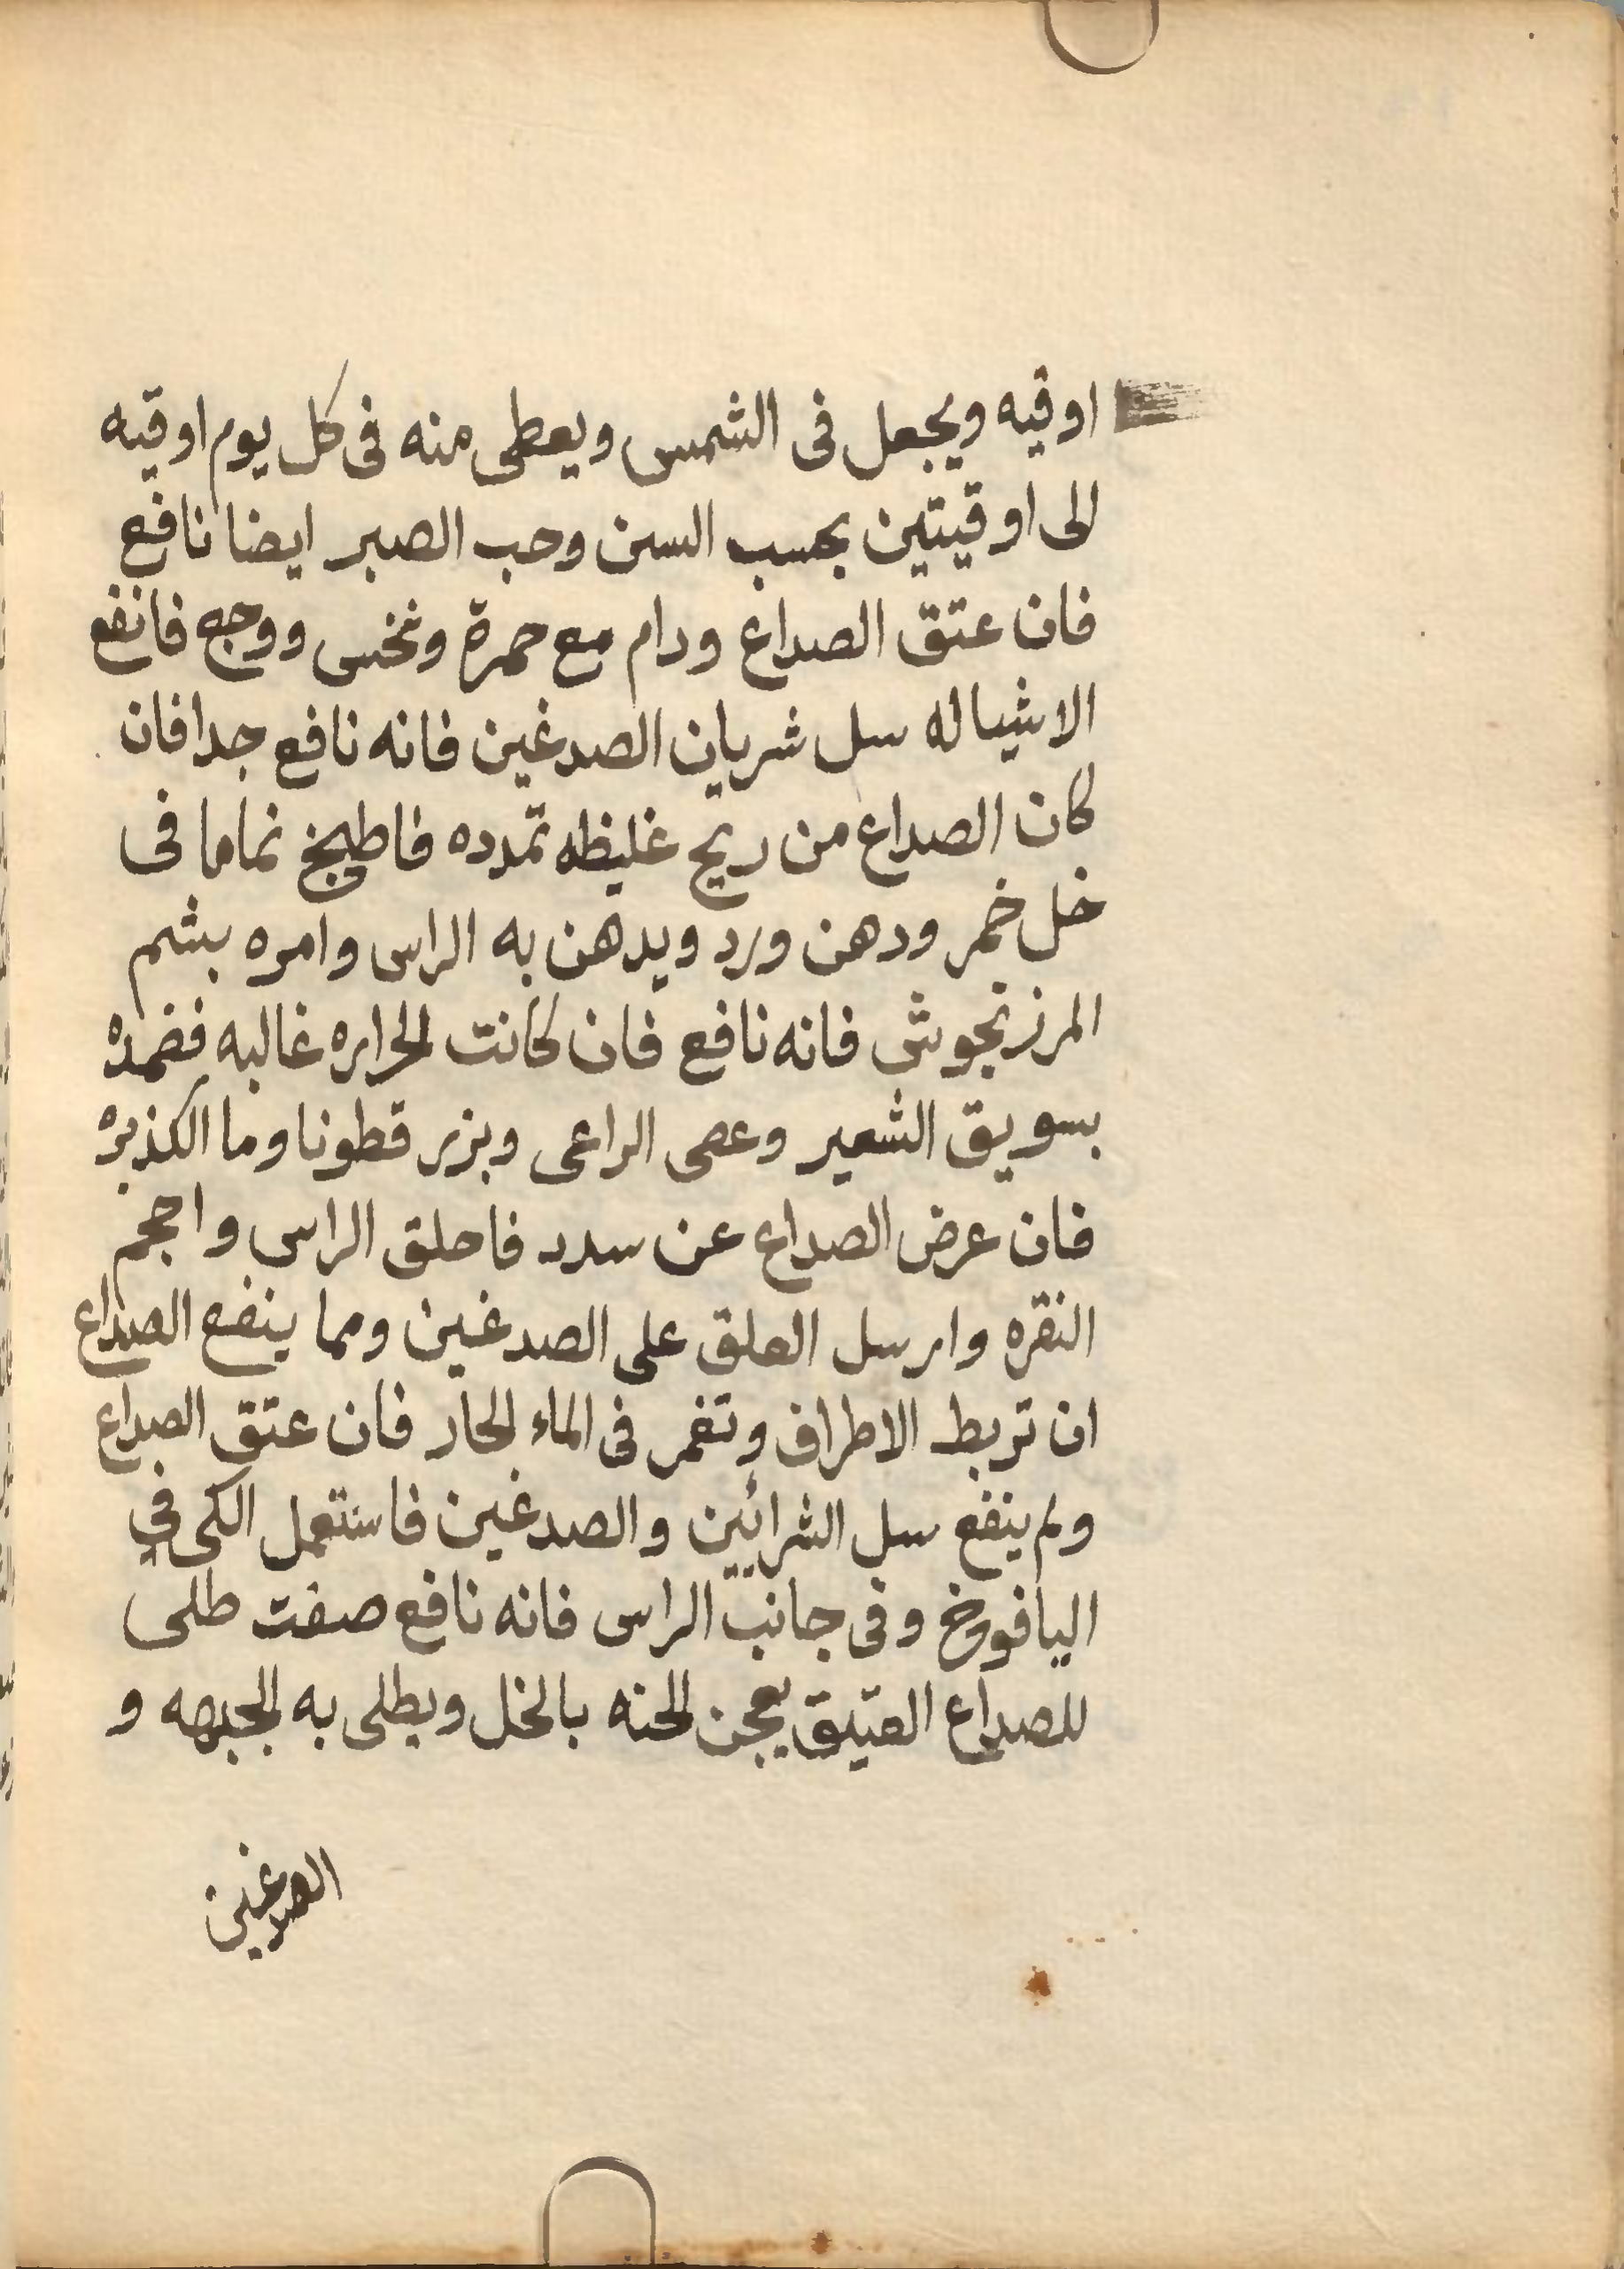 اوقيه ويجعل فى الشمس ويعطى منه فى كل يوم اوقيه
الى اوقيتين بحسب السن وحب الصبر ايضا نافع
فان عتق الصداع ودام مع حمرة ونخس ووجع فانفع
الاشيا له سل شريان الصدغين فانه نافع جدا فان
كان الصداع من ريح غليظه تمدده فاطبخ نماما فى
خل خمر ودهن ورد ويدهن به الراس وامره بشم
المرزنجوش فانه نافع فان كانت الحراره غالبه فضمده
بسويق الشعير وعصى الراعى وبزر قطونا وما الكذبره
فان عرض الصداع عن سدد فاحلق الراس واحجم
النقره وارسل العلق على الصدغين ومما ينفع الصداع
ان تربط الاطراف وتغمر فى الماء الحار فان عتق الصداع
ولم ينفع سل الشرائين والصدغين فاستعمل الكى في
اليافوخ وفى جانب الراس فانه نافع صفت طلى
للصداع العتيق يعجن الحنه بالخل ويطلى به الجبهه و
الصدغين